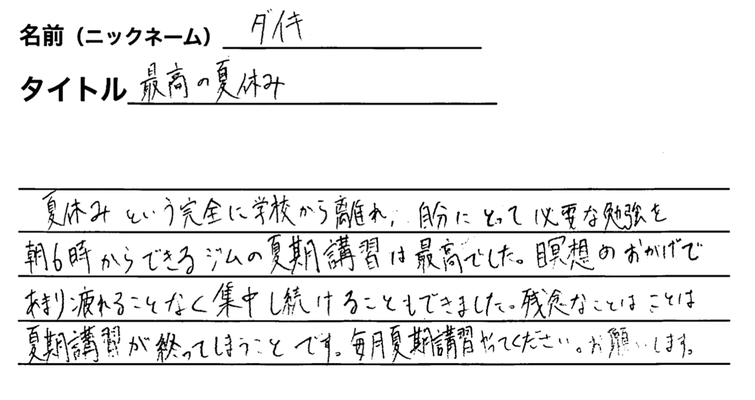 名前（ニックネーム） ダイキ
タイトル 最高の夏休み
夏休みという完全に学校から離れ, 自分にとって必要な勉強を
朝6時からできるジムの夏期講習は最高でした。瞑想のおかげで
あまり疲れることなく集中し続けることもできました。残念なことはことは
夏期講習が終ってしまうことです。毎月夏期講習やってください。お願いします。